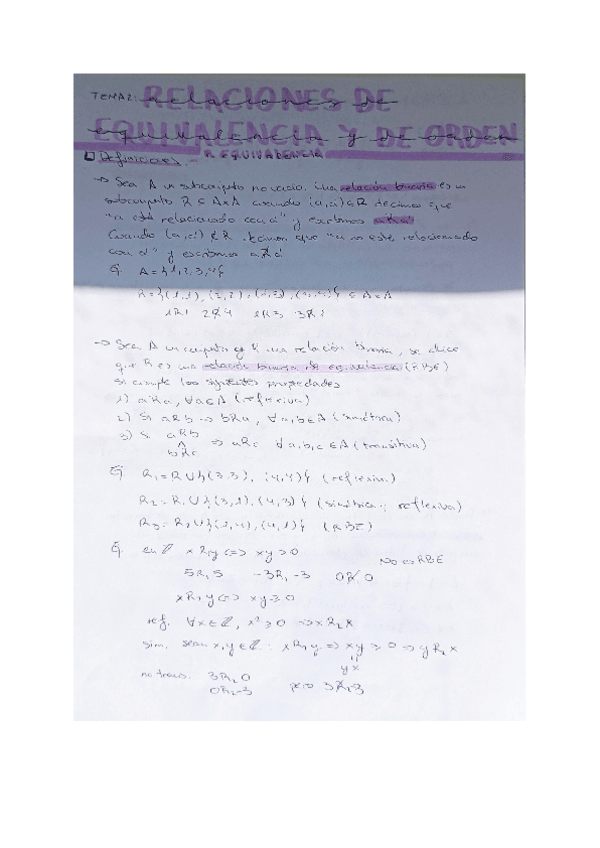 TEMA 2: RELACIONES DE
EQUIVALENCIA Y DE ORDEN
Definiciones - R EQUIVALENCIA
→ Sea A un subconjunto no vacío, una relación binaria es un
subconjunto R ⊆ A×A cuando (a,a') ∈ R decimos que
"a está relacionado con a'" y escribimos aRa'
Cuando (a,a') ∉ R, que "a no está relacionado
con a'" y escribimos aR̸a'
Ej. A = {1,2,3,4}
R = {(1,1), (2,2), ⊆ A×A
1R1 2R̸4
→ Sea A un conjunto y R una relación binaria, se dice
que R es una relación binaria de equivalencia (RBE)
si cumple las siguientes propiedades
1) aRa, ∀a∈A (reflexiva)
2) Si aRb → bRa, ∀a,b∈A (simétrica)
3) Si aRb ∧ bRc ⇒ aRc ∀a,b,c∈A (transitiva)
Ej R₁ = R∪{(3,3), (4,4)} (reflexiva)
R₂ = R₁∪{(3,1), (4,3)} (simétrica y reflexiva)
R₃ = R₂∪{(1,4), (4,1)} (RBE)
Ej. en ℤ xR₁y ⇔ xy>0 No es RBE
5R₁5 -3R₁-3 0R̸₁0
xR₂y ⇔ xy≥0
ref. ∀x∈ℤ, x²≥0 ⇒ xR₂x
sim. sean x,y∈ℤ: xR₂y ⇒ xy≥0 ⇒ yR₂x
yx
no trans. 3R₂0
0R₂-3 pero 3R̸₂-3